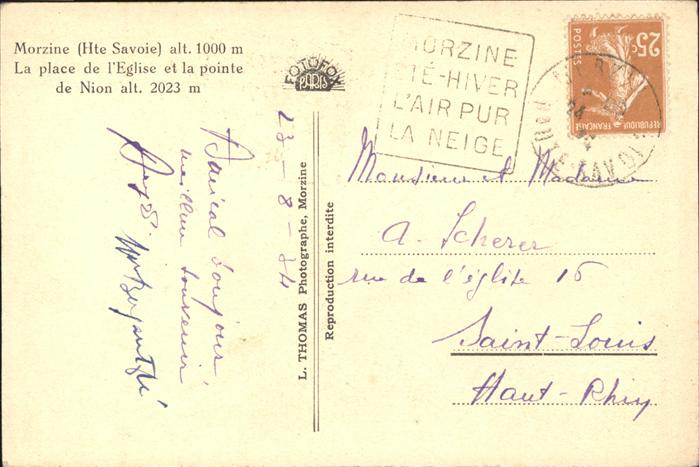 Morzine (Hte Savoie) alt. 1000 m
La place de l'Eglise et la pointe
de Nion alt. 2023 m
FOTOFOX
MORZINE
TÉ-HIVER
L'AIR PUR
LA NEIGE
25c
POSTES
REPUBLIQUE FRANÇAISE
HAUTE SAVOIE
23-8-34
toujours
meilleur souvenir
L. THOMAS Photographe, Morzine
Reproduction interdite
Monsieur et Madame
A. Scherer
rue de l'église 16
Saint-Louis
Haut-Rhin